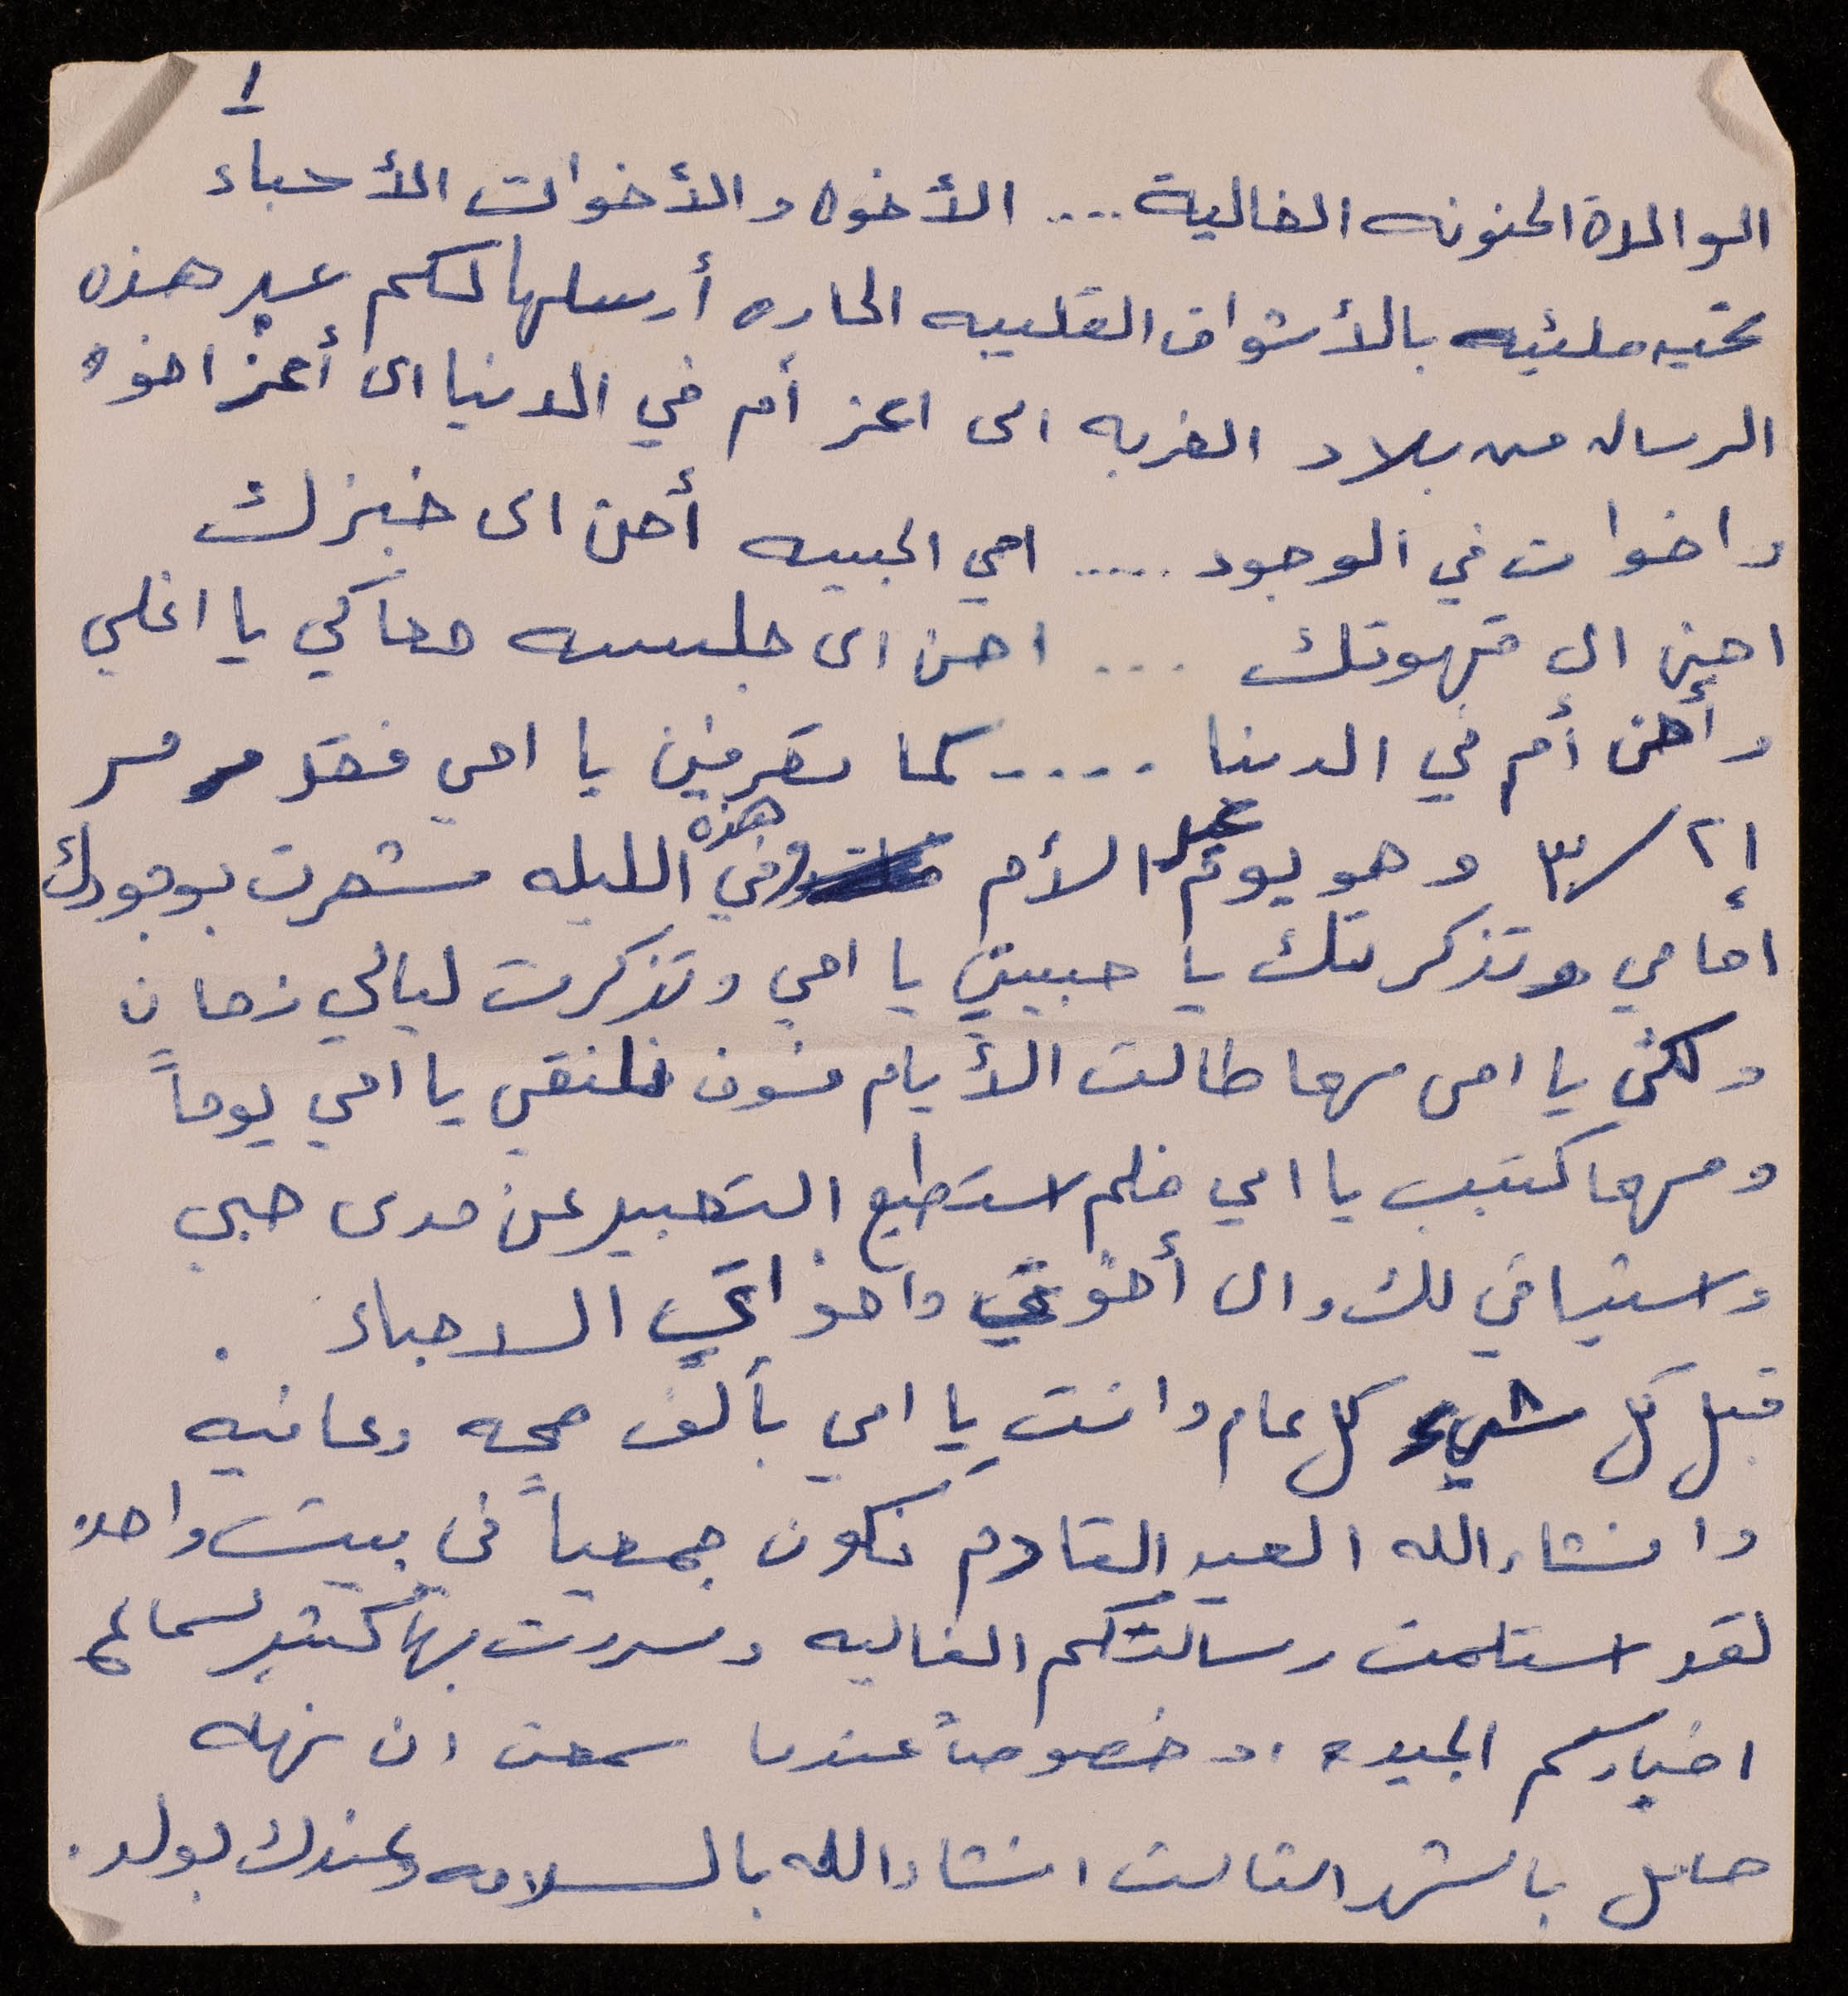 ١
الوالدة الحنونه الغالية .... الأخوه والأخوات الأحباء
تحيه مليئه بالأشواق القلبيه الحاره أرسلها لكم عبر هذه
الرساله من بلاد الغربه الى اعز أم في الدنيا الى أعز اخوه
واخوات في الوجود ..... امي الحبيبه أحن الى خبزك
احن الى قهوتك ... احن الى جلسه معاكي يا اغلى
وأحن أم في الدينا ..... كما تعرفين يا امي فقد مر
٢١/٣ وهو يوم عيد الأم وفي هذه الليله شعرت بوجودك
امامي وتذكرتك يا حبيبتي يا امي وتذكرت ليالي زمان
ولكن يا امي مهما طالت الأيام فسوف نلتقي يا امي يوماً
ومهما كتبت يا امي فلم استطيع التعبير عن مدى حبي
واشتياقي لك والى أخوتي واخواتي الاحباء .
قبل كل شيء كل عام وانت يا امي بألف صحه وعافيه
وانشاءالله العيد القادم نكون جمعياً في بيت واحد
لقد استلمت رسالتكم الغاليه وسررت بها كثير لسماع
اخباركم الجيده وخصوصاً عندما سمعت ان نهله
حامل بالشهر الثالث انشاءالله بالسلامه وعندك بولد.